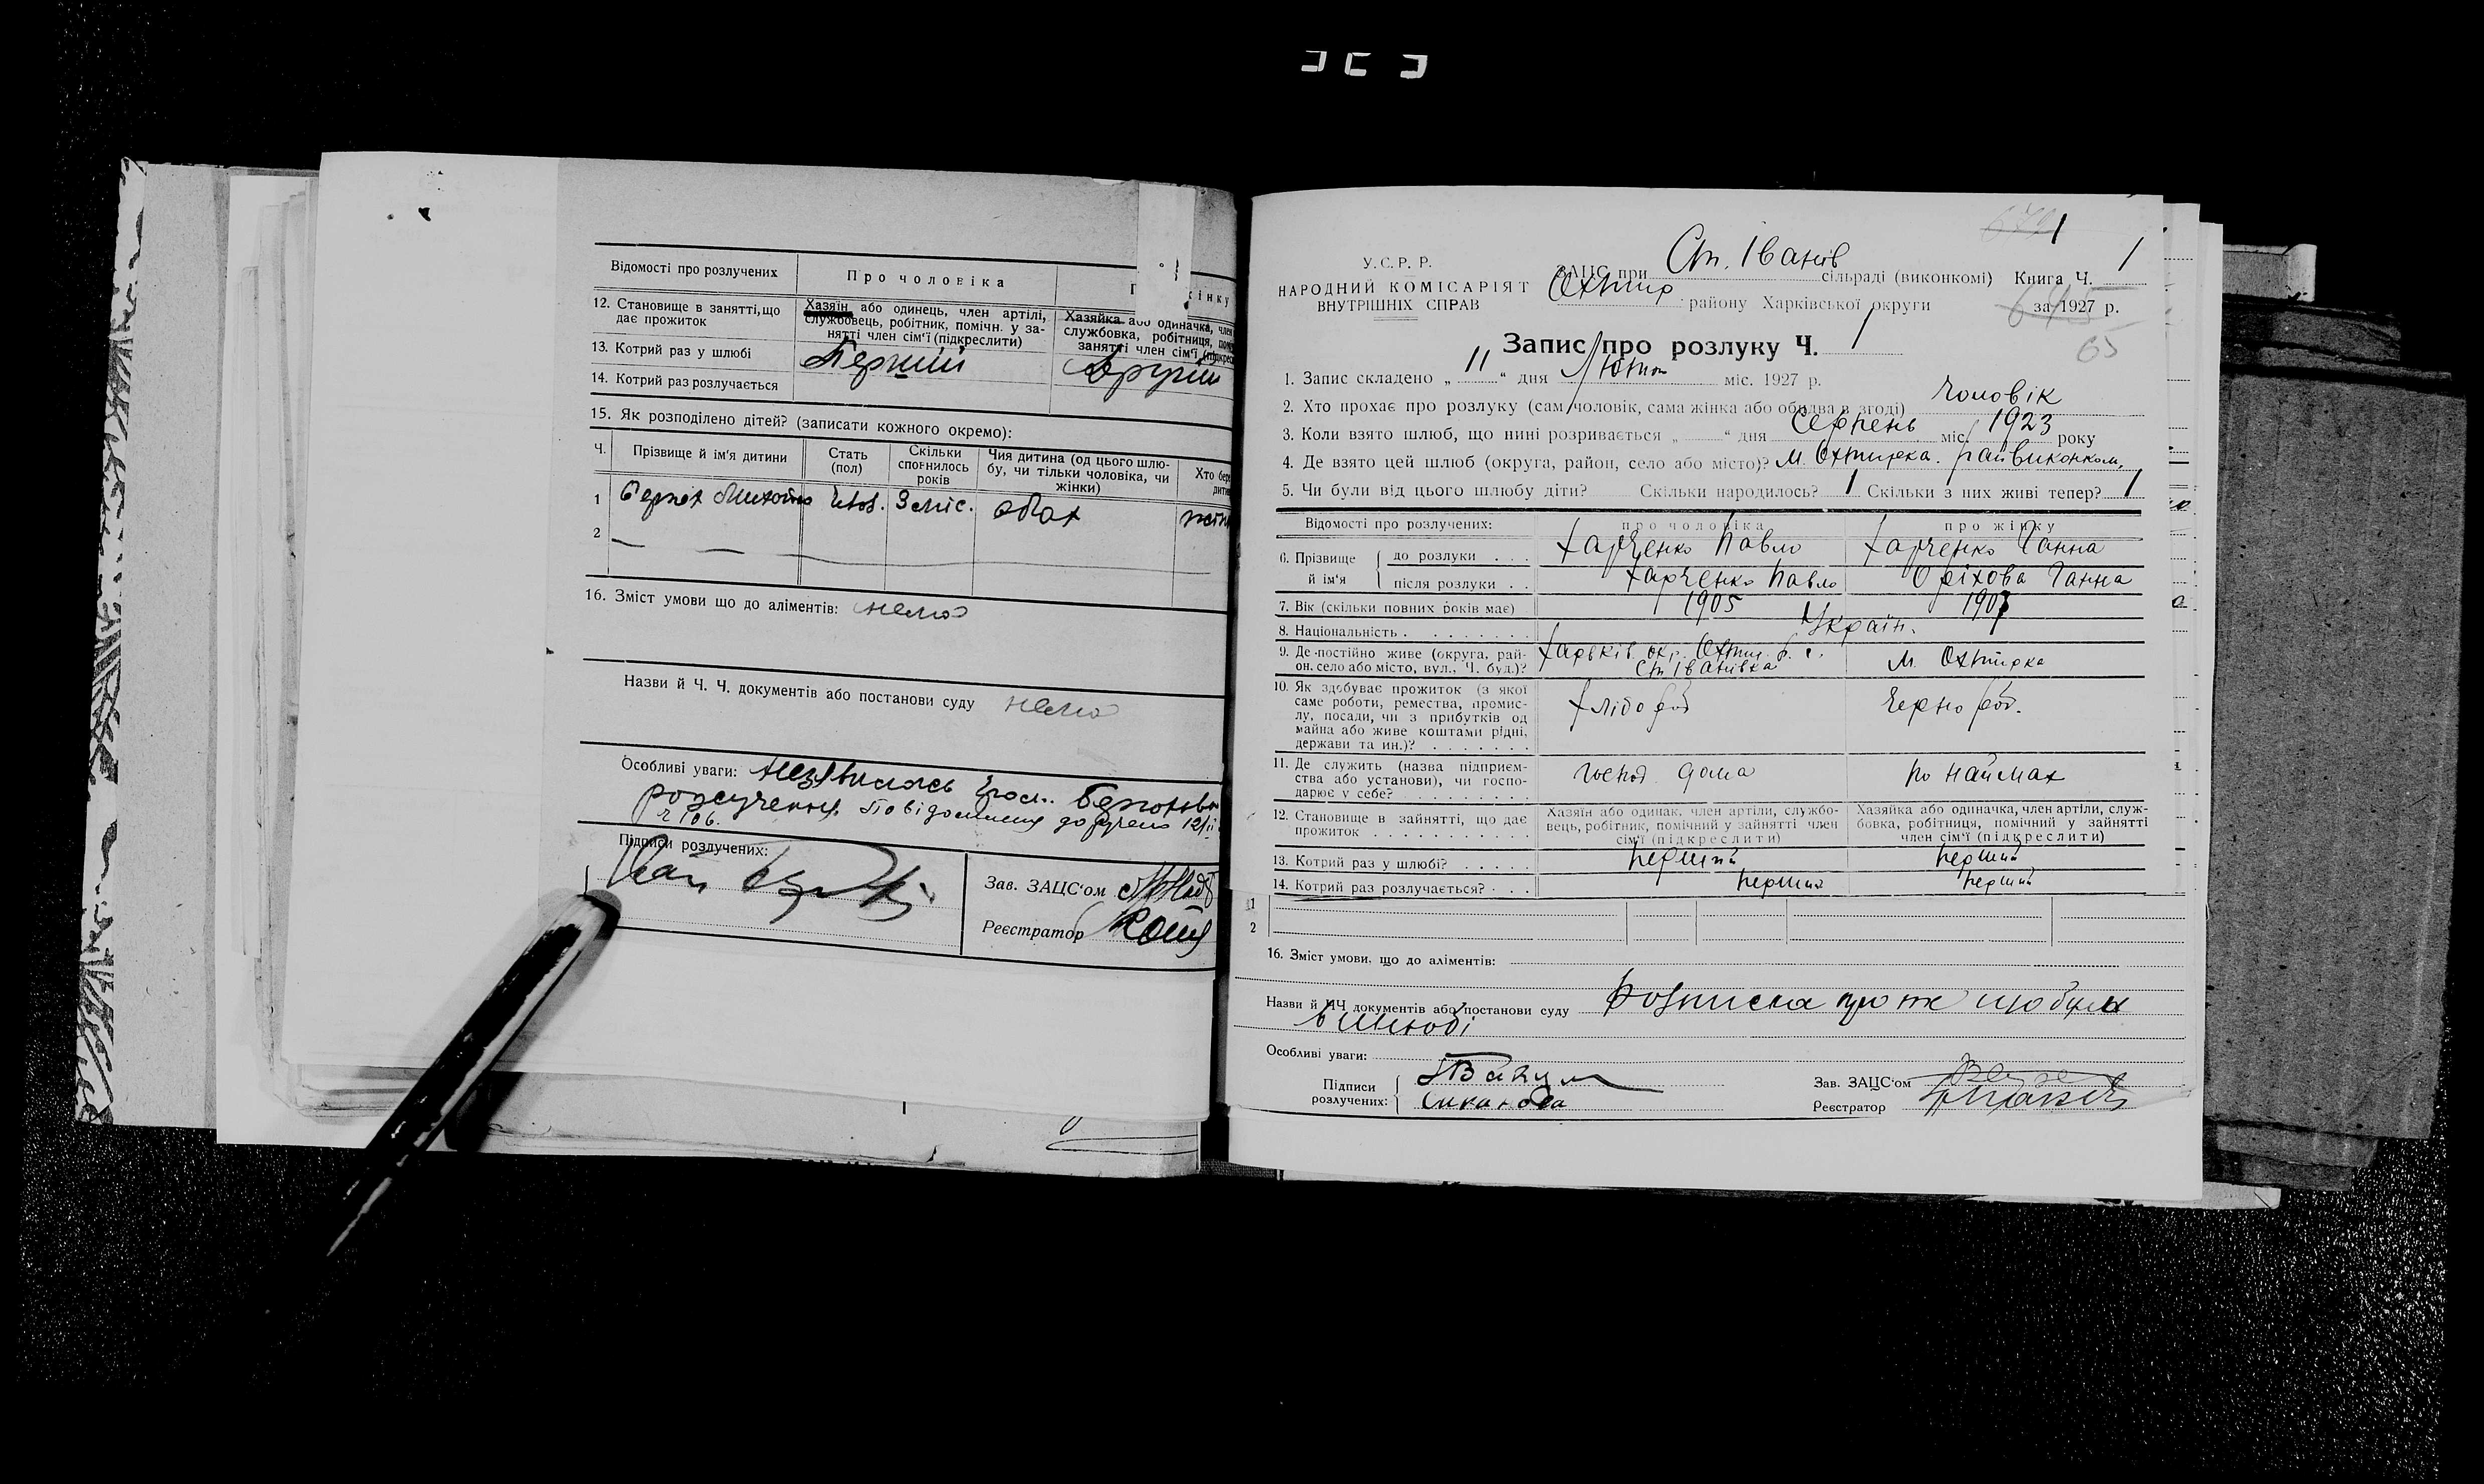 Відомості про розлучених
Про чоловіка
інку
12. Становище в занятті, що дає прожиток
Хазяїн або одинець, член артілі,
службовець, робітник, помічн. у за-
нятті член сім'ї (підкреслити)
Хазяйка або одиначка, член
службовка, робітниця, пом
занятті член сім'ї (підкрес
13. Котрий раз у шлюбі
Перший
Другий
14. Котрий раз розлучається
15. Як розподілено дітей? (записати кожного окремо):
Ч.
Прізвище й ім'я дитини
Стать (пол)
Скільки сповнилось років
Чия дитина (од цього шлю-
бу, чи тільки чоловіка, чи
жінки)
Хто бере
дити
1
чол. 3 міс. обох
2
16. Зміст умови що до аліментів: нема
Назви й Ч. Ч. документів або постанови суду нема
Особливі уваги:
Підписи розлучених:
Зав. ЗАЦС'ом
Реєстратор
1
У.С.Р.Р.
НАРОДНИЙ КОМІСАРІЯТ
ВНУТРІШНІХ СПРАВ
ЗАЦС при Ст. Іванів сільраді (виконкомі) Книга Ч. 1
Охтир району Харківської округи за 1927 р.
65
Запис про розлуку Ч. 1
1. Запис складено „ 11 “ дня Лютого міс. 1927 р.
2. Хто прохає про розлуку (сам чоловік, сама жінка або обидва в згоді) чоловік
3. Коли взято шлюб, що нині розривається „ “ дня Серпень міс. 1923 року
4. Де взято цей шлюб (округа, район, село або місто)? м. Охтирка. райвиконком.
5. Чи були від цього шлюбу діти? Скільки народилось? 1 Скільки з них живі тепер? 1
Відомості про розлучених:
про чоловіка
про жінку
6. Прізвище й ім'я
до розлуки . . .
Харченко Павло
Харченко Ганна
після розлуки . .
Харченко Павло
Оріхова Ганна
7. Вік (скільки повних років має)
1905
1907
8. Національність . . . . . . . .
Україн.
9. Де постійно живе (округа, рай-
он, село або місто, вул., Ч. буд.)?
Харьків. окр. Охтир. р. с.
Ст Іванівка
м. Охтирка
10. Як здобуває прожиток (з якої
саме роботи, ремества, промис-
лу, посади, чи з прибутків од
майна або живе коштами рідні,
держави та ин.)? . . . . . . .
Хлібороб
Чернороб.
11. Де служить (назва підприєм-
ства або установи), чи госпо-
дарює у себе? . . . . . . . .
господ. дома
по наймах
12. Становище в зайнятті, що дає
прожиток . . . . . . . . . . .
Хазяїн або одинак, член артіли, службо-
вець, робітник, помічний у зайнятті член
сім'ї (підкреслити)
Хазяйка або одиначка, член артіли, служ-
бовка, робітниця, помічний у зайнятті
член сім'ї (підкреслити)
13. Котрий раз у шлюбі? . . . . .
перший
перший
14. Котрий раз розлучається? . . .
перший
перший
1
2
16. Зміст умови, що до аліментів:
Назви й ЧЧ документів або постанови суду Розписка про те що були
в шлюбі
Особливі уваги:
Підписи розлучених:
Зав. ЗАЦС'ом
Реєстратор